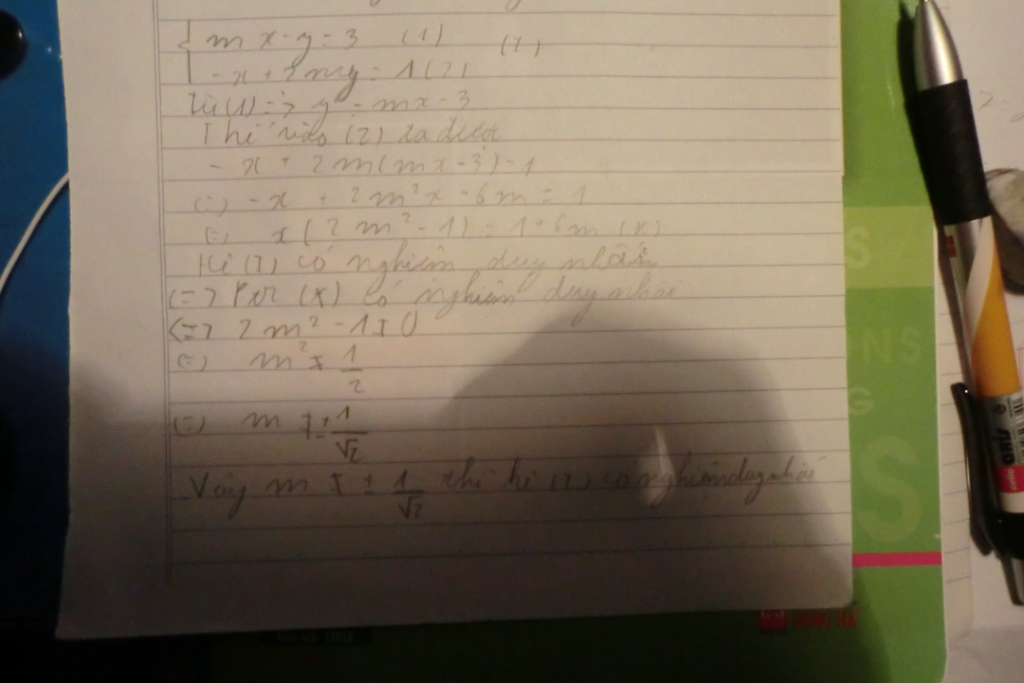 m x - y = 3 (1) (I)
- x + 2my = 1 (2)
Từ (1) => y = mx - 3
Thế vào (2) ta được
- x + 2m(mx - 3) = 1
(=) -x + 2m²x - 6m = 1
(=) x(2m² - 1) = 1 + 6m (*)
Hệ (I) có nghiệm duy nhất
<=> Ptr (*) có nghiệm duy nhất
<=> 2m² - 1 ≠ 0
(=) m² ≠ 1/2
(=) m ≠ ± 1/√2
Vậy m ≠ ± 1/√2 thì hệ (I) có nghiệm duy nhất
S
NS
G
S